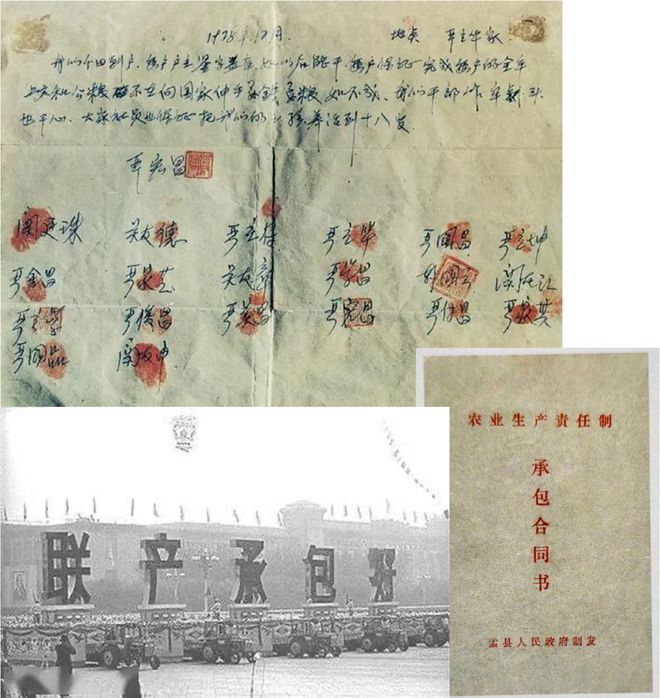 1978年12月. 地点 严立华家
我们分田到户，每户户主签字盖章，如以后能干，每户保证完成每户的全年
上交和公粮，不在向国家伸手要钱要粮，如不成，我们干部作牢刹头
也干心，大家社员也保证把我们的小孩养活到十八岁。
严宏昌
关廷珠 关友德 严立付 严立华 严国昌 严立坤
严金昌 严家芝 关友章 严学昌 韩国云 关友江
严立学 严俊昌 严美昌 严宏昌 严付昌 严家其
严国品 关友申
农业生产责任制
承包合同书
盂县人民政府制发
联产承包好